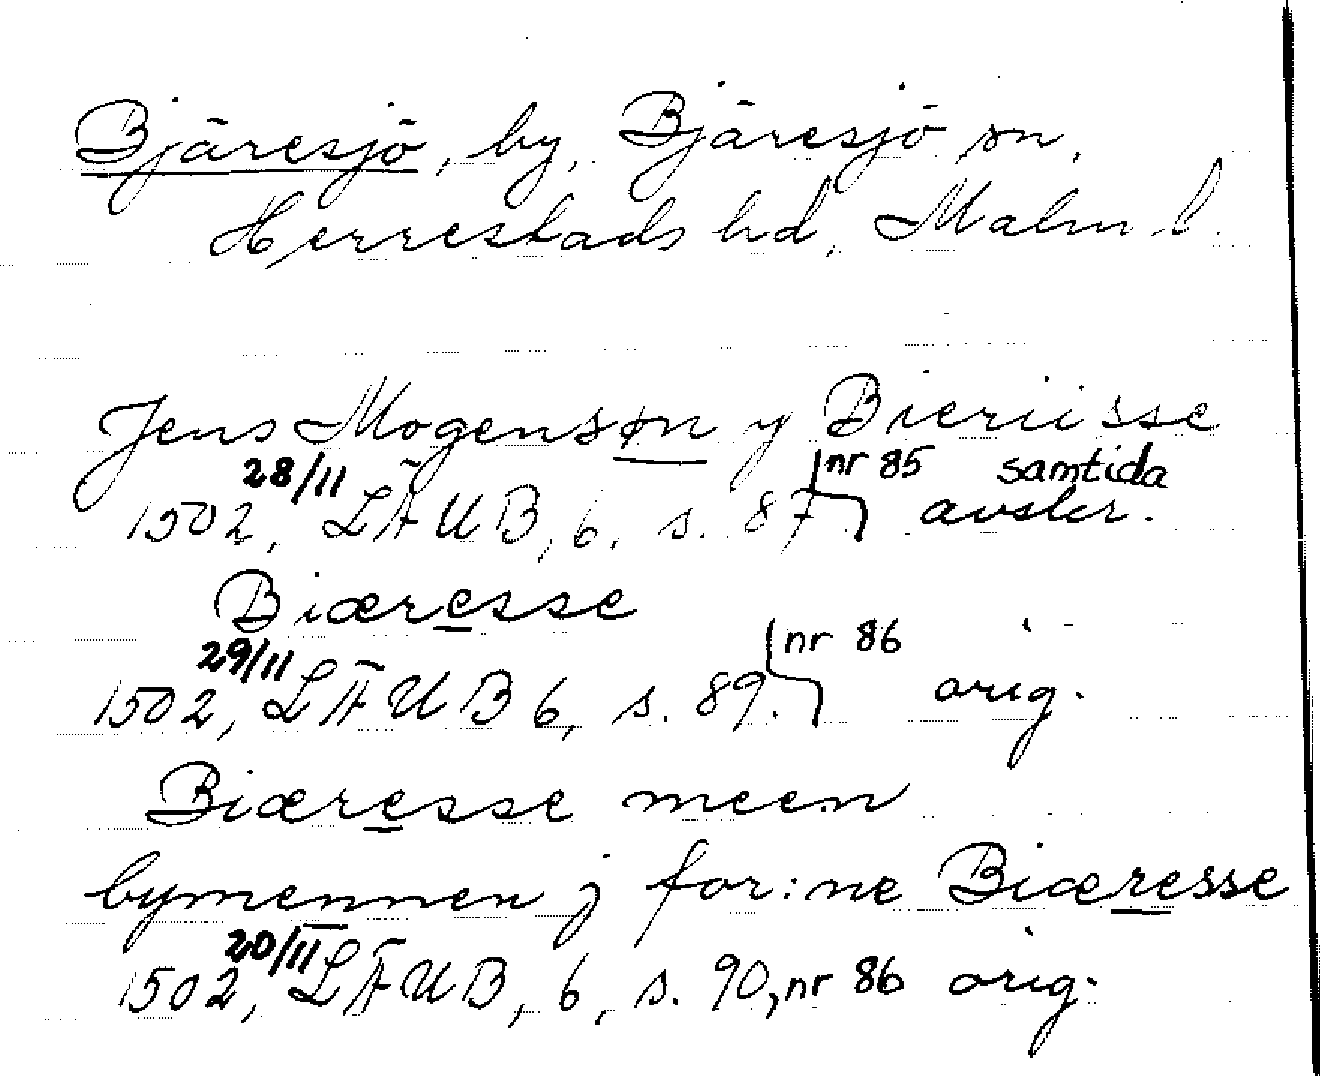 Bjäresjö, by, Bjäresjö sn,
Herrestads hd, Malm l.
Jens Mogensøn y Bieriisse
1502, 28/11 LÄUB, 6, s. 87, nr 85 samtida avskr.
Biæresse
1502, 29/11 LÄUB 6, s. 89. nr 86 orig.
Biæresse meen
bymennen j for:ne Biæresse
1502, 20/11 LÄUB, 6, s. 90, nr 86 orig.